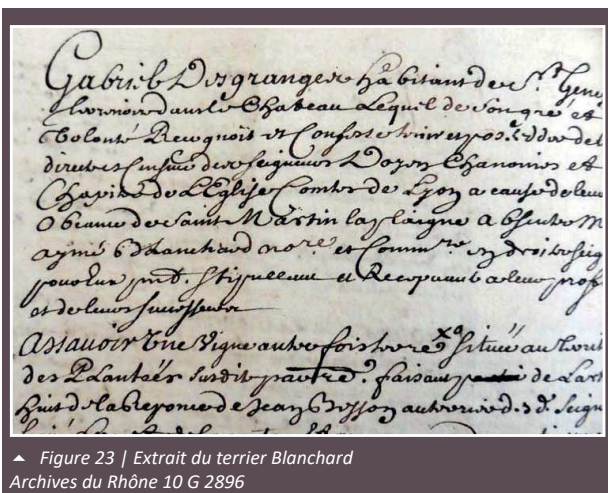 Gabriel Desgranges habitant de St Gene
dans le Chateau Lequel de son gré et
Volonté Recognoit et Confesse tenir et posseder de la
directe Censive des seigneurs Doyen Chanoines et
Chapitre de L'Eglise Comtes de Lyon a cause de leur
Obeance de Saint Martin la plaigne absents M
aymé Blanchard nore et Commre
pour Eux pnt. Stipullant et Recepvant a leur prof
et de leurs successeurs
Assavoir Une Vigne autrefois terre située au Territ
des Plantées faisant partie de L'art
huit de la Reponce de Jean Besson d. Seign
Figure 23 | Extrait du terrier Blanchard
Archives du Rhône 10 G 2896